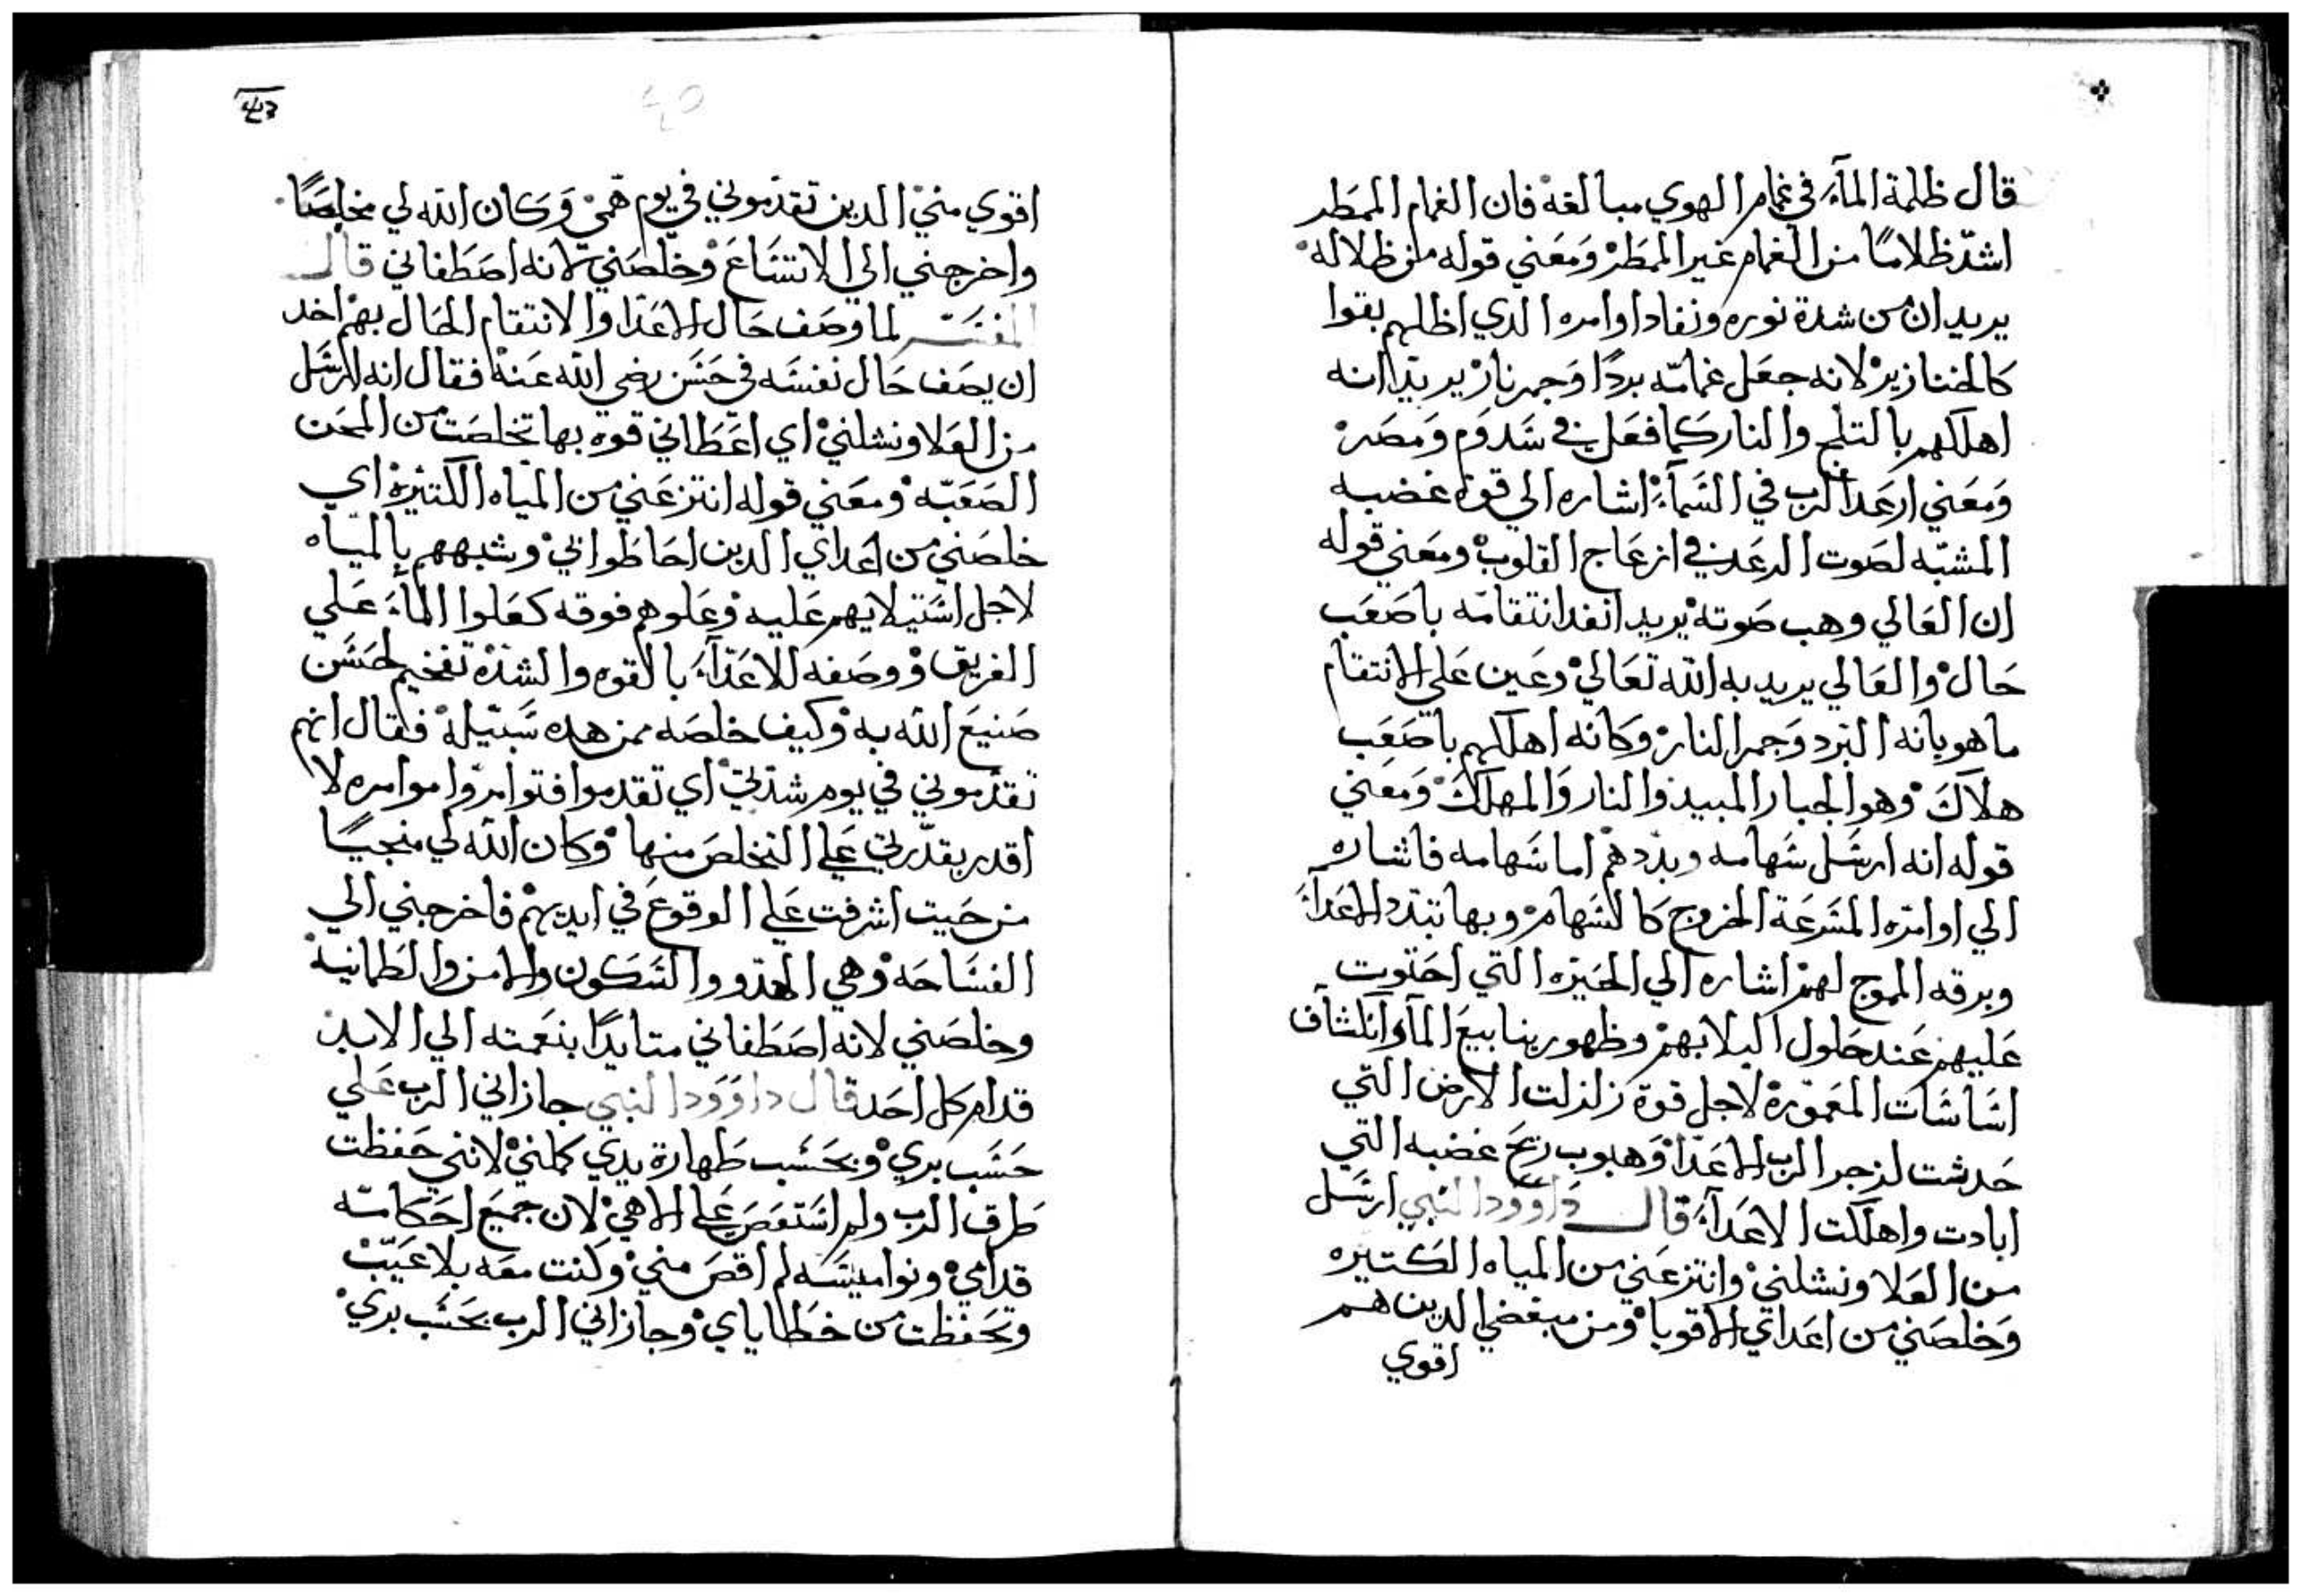 قال ظلمة المآء في غمام الهوي مبالغة فان الغمام الممطر
اشد ظلامًا من الغمام غير الممطر ومعني قوله من ظلاله
يريد ان من شدة نوره ونفاد اوامره الدي اظلهم بقوا
كالخنازير لانه جعل غمامه بردًا وجمر نار يريد انه
اهلكهم بالتلج والنار كما فعل في سدوم ومصر
ومعني ارعد الرب في السمآء اشاره الي قوة غضبه
المشبه لصوت الرعد في ازعاج القلوب ومعني قوله
ان العالي وهب صوته يريد انفد انتقامه باصعب
حال والعالي يريد به الله تعالي وعين علي الانتقام
ما هو بانه البرد وجمر النار وكانه اهلكهم باصعب
هلاك وهو الجبار المبيد والنار والمهلك ومعني
قوله انه ارسل سهامه وبددهم اما سهامه فاشاره
الي اوامره المسرعة الخروج كالسهام وبها تبدد الاعدآء
وبرقه الموج لهم اشاره الي الحيره التي احتوت
عليهم عند حلول البلا بهم وظهور ينابيع المآء وانكشاف
اساسات المعموره لاجل قوة زلزلت الارض التي
حدثت لزجر الرب الاعدا وهبوب ريح غضبه التي
ابادت واهلكت الاعدآء قال داوود النبي ارسل
من العلا ونشلني وانتزعني من المياه الكتيره
وخلصني من اعداي الاقويا ومن مبغضي الدين هم
اقوي
اقوي مني الدين تقدموني في يوم همي وكان الله لي مخلصًا
واخرجني الي الاتساع وخلصني لانه اصطفاني قال
المفسر لما وصف حال الاعدا والانتقام الحال بهم اخد
ان يصف حال نفسه في حسن رضي الله عنه فقال انه ارسل
من العلا ونشلني اي اعطاني قوه بها تخلصت من المحن
الصعبه ومعني قوله انتزعني من المياه الكتيرة اي
خلصني من اعداي الدين احاطوا بي وشبههم بالمياه
لاجل استيلايهم عليه وعلوهم فوقه كعلوا المآء علي
الغريق ووصفه للاعدآء بالقوه والشدة تفخيم لحسن
صنيع الله به وكيف خلصه ممن هده سبيله فقال انهم
تقدموني في يوم شدتي اي تقدموا فتوامروا موامره لا
اقدر بقدرتي علي التخلص منها وكان الله لي منجيًا
من حيت اشرفت علي الوقوع في ايديهم فاخرجني الي
الفساحه وهي الهدو والسكون والامن والطمانينة
وخلصني لانه اصطفاني متايدًا بنعمته الي الابد
قدام كل احد قال داوود النبي جازاني الرب علي
حسب بري وبحسب طهارة يدي كملني لانني حفظت
طرق الرب ولم استعص علي الاهي لان جميع احكامه
قدامي ونواميسه لم اقص مني وكنت معه بلا عيب
وتحفظت من خطاياي وجازاني الرب بحسب بري